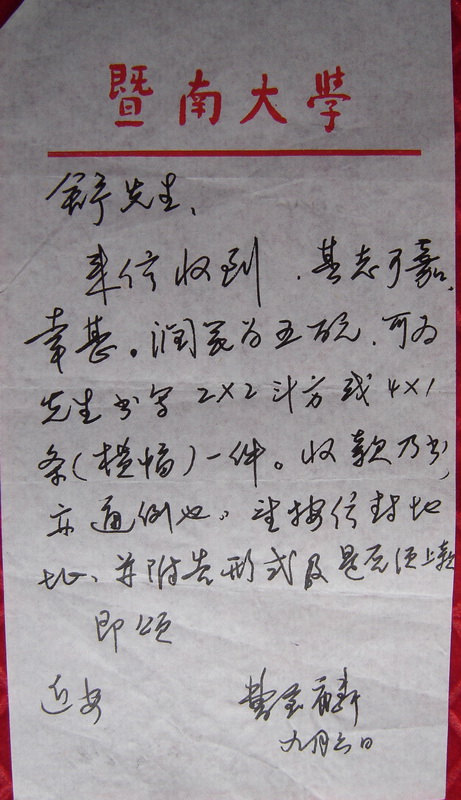 暨南大學
舒先生、
来信收到，其志可嘉，
幸甚。润笔为五百元，可为
先生书写2×2斗方或4×1
条（横幅）一件。收款乃书，
亦通例也。望按信封地
址、并附告形式及是否须上款
即颂
近安
九月六日